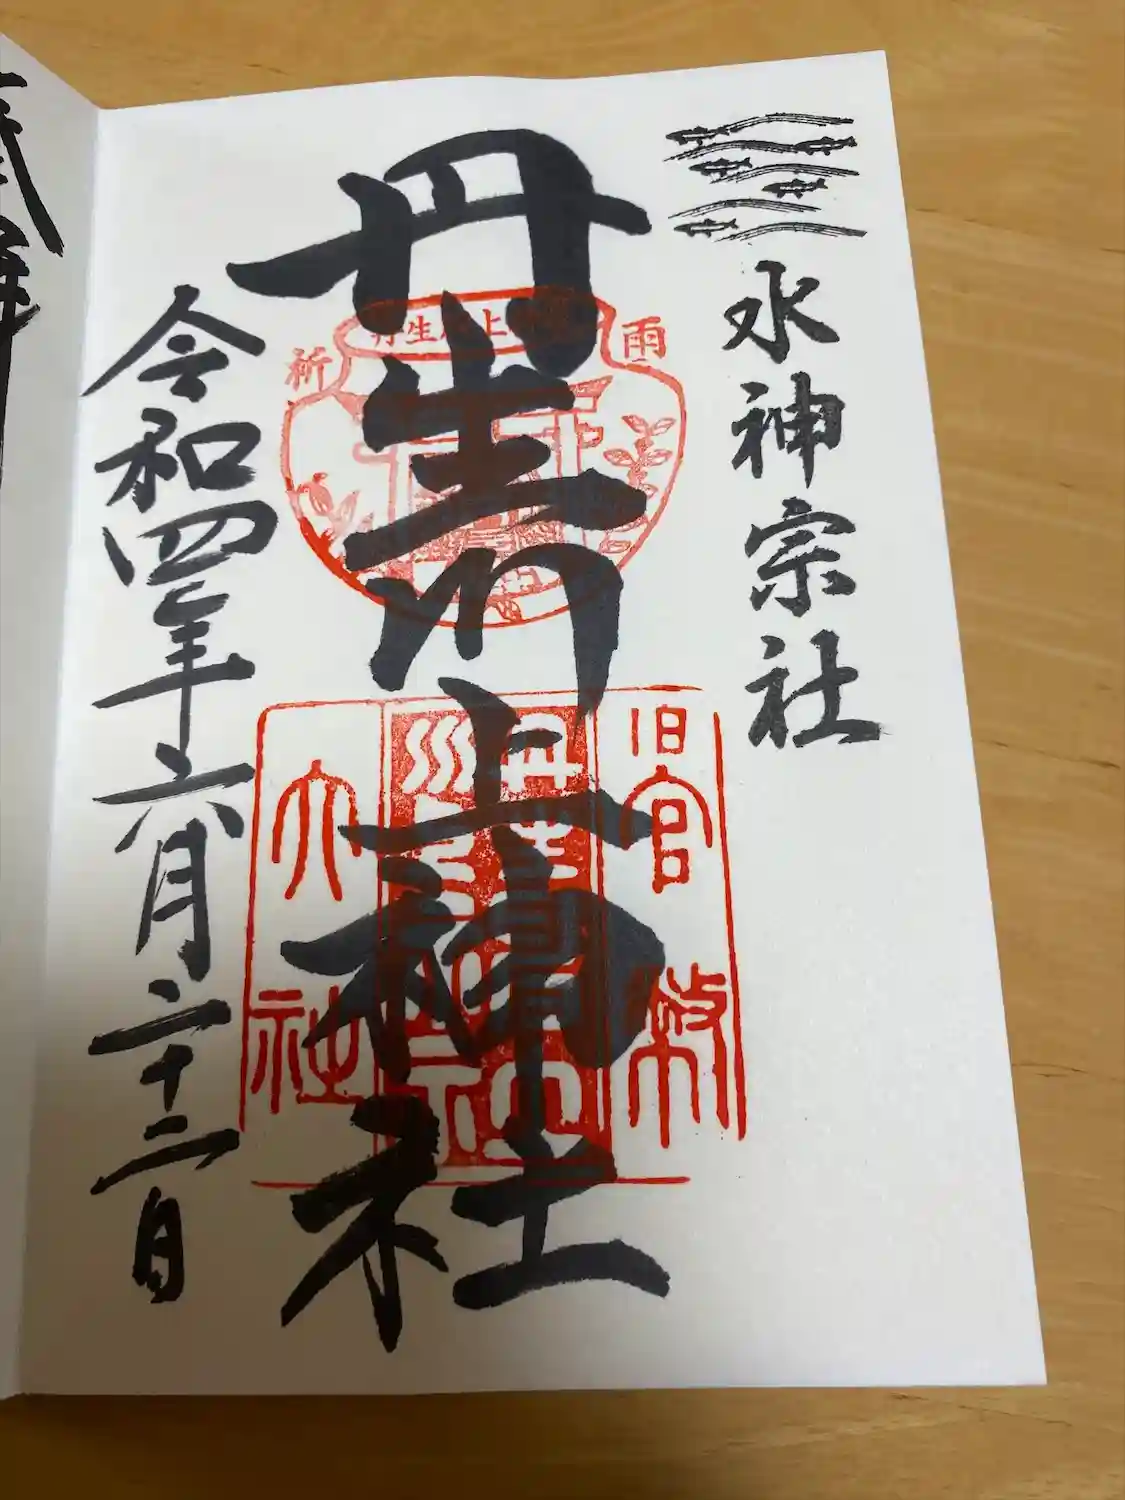 水神宗社
丹生川上神社
令和四年六月二十二日
祈
雨
丹生川上
旧官幣
大社
奉拝